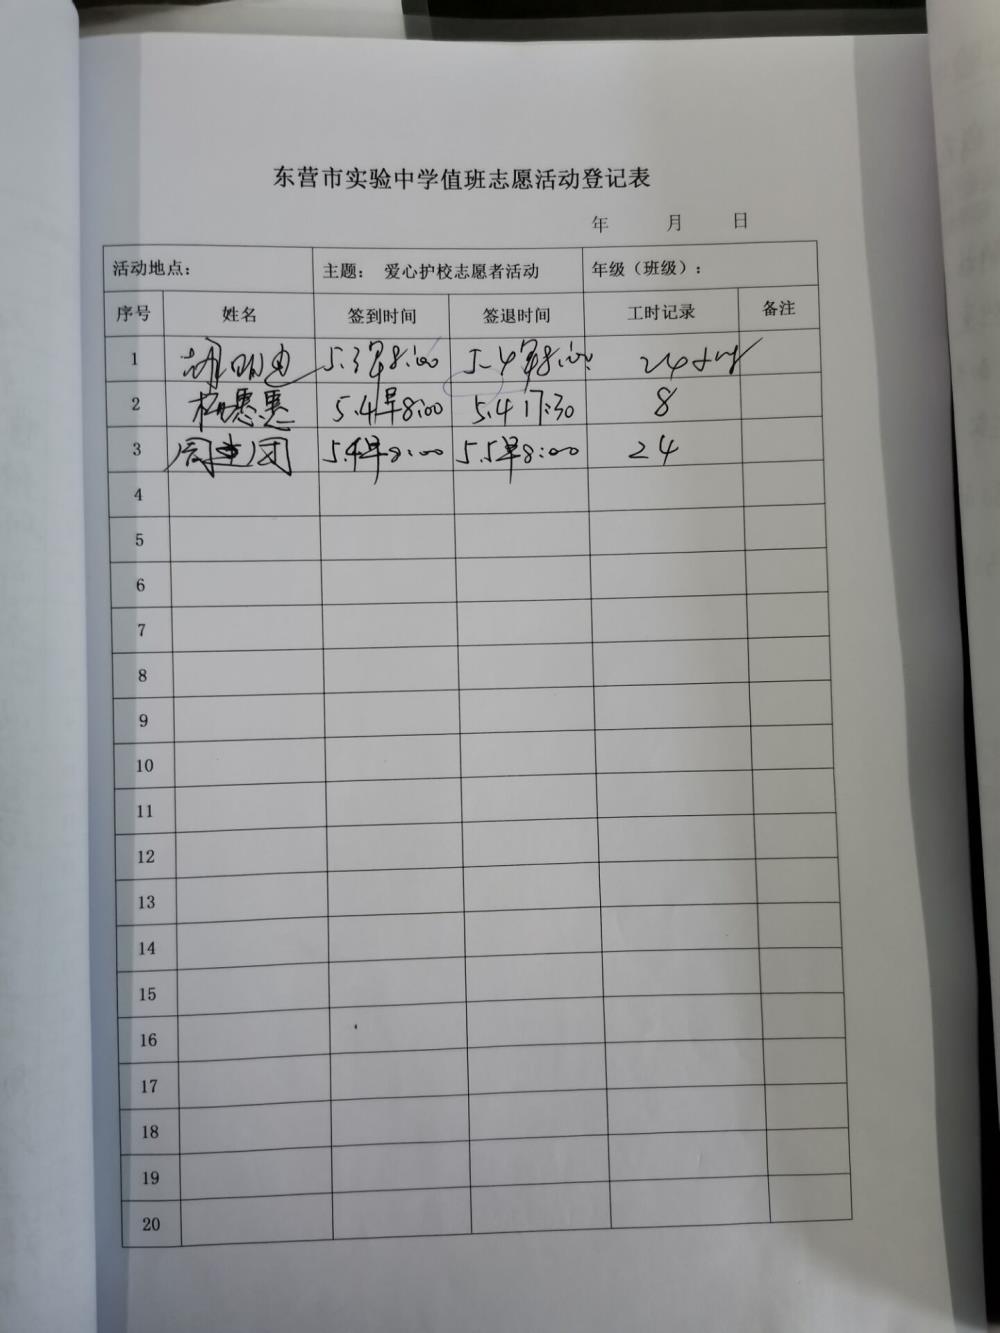 东营市实验中学值班志愿活动登记表
年 月 日
活动地点： 主题： 爱心护校志愿者活动 年级（班级）：
序号 姓名 签到时间 签退时间 工时记录 备注
1 5.3早8:00 5.4早8:00 24小时
2 惠惠 5.4早8:00 5.4 17:30 8
3 周建团 5.4早8:00 5.5早8:00 24
4
5
6
7
8
9
10
11
12
13
14
15
16
17
18
19
20